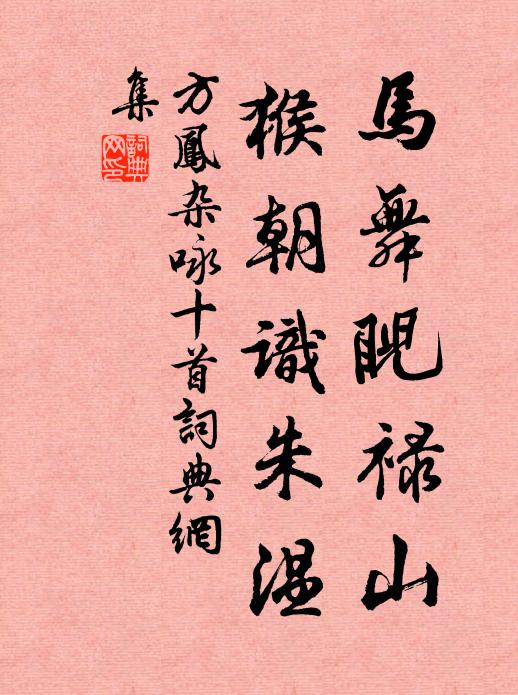 馬舞睨禄山
猴朝識朱温
方鳳杂咏十首詞典網
集
詞典
网印